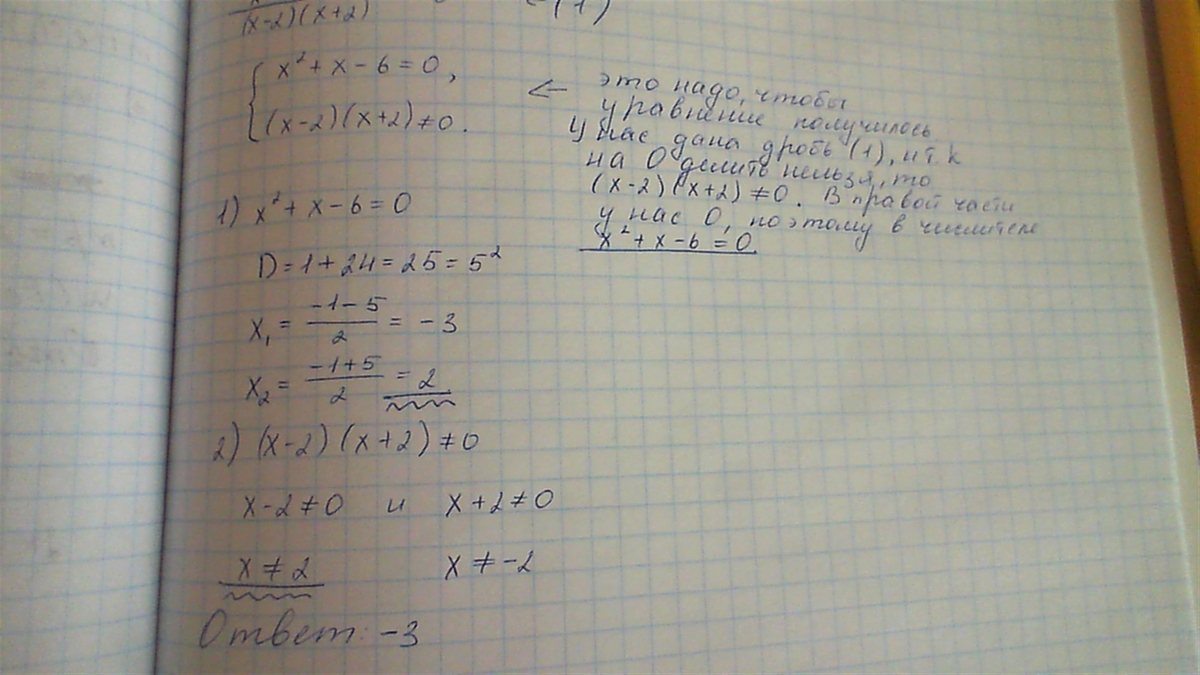 (x-2)(x+2)
(1)
{ x² + x - 6 = 0,
(x-2)(x+2) ≠ 0.
← это надо, чтобы
уравнение получилось
У нас дана дробь (1), и т.к
на 0 делить нельзя, то
(x-2)(x+2) ≠ 0. В правой части
у нас 0, поэтому в числителе
x² + x - 6 = 0
1) x² + x - 6 = 0
D = 1 + 24 = 25 = 5²
x₁ = (-1-5)/2 = -3
x₂ = (-1+5)/2 = 2
2) (x-2)(x+2) ≠ 0
x-2 ≠ 0 и x+2 ≠ 0
x ≠ 2 x ≠ -2
Ответ: -3